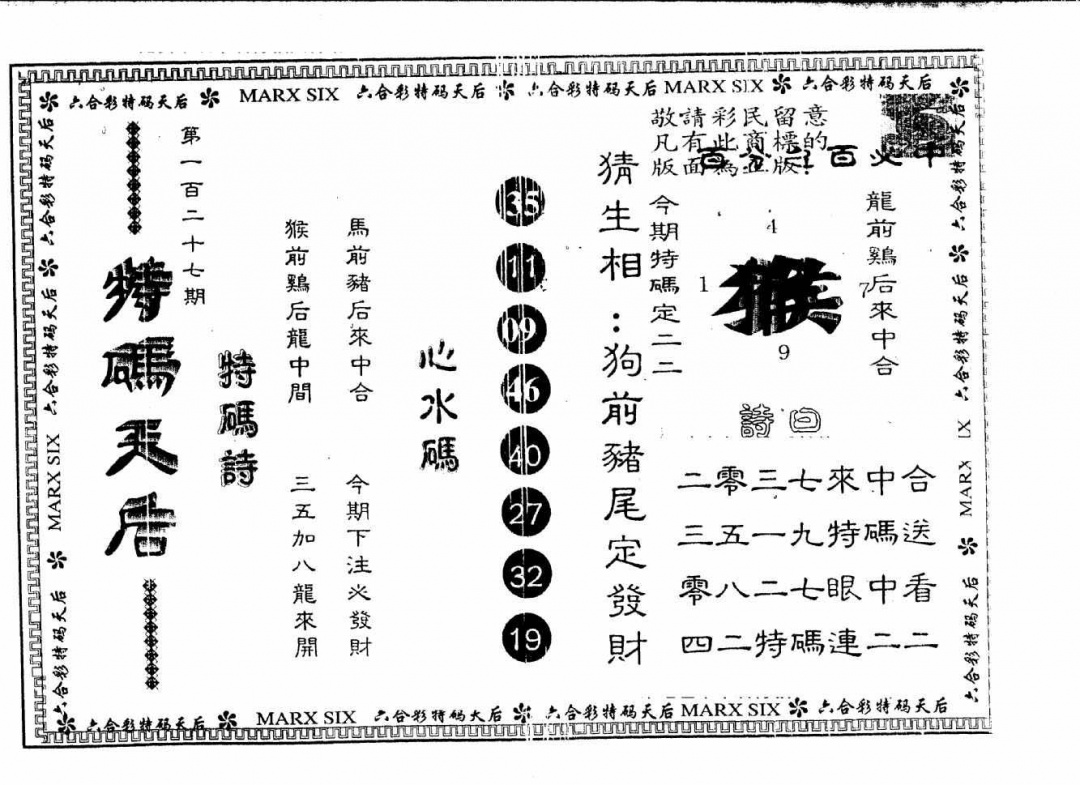 六合彩特码天后 MARX SIX 六合彩特码天后 六合彩特码天后 MARX SIX 六合彩特码天后
敬請彩民留意
凡有此商標的
版面為正版!
第一百二十七期
特碼天后
特碼詩
馬前豬后來中合
猴前鷄后龍中間
今期下注必發財
三五加八龍來開
心水碼
35
11
09
46
40
27
32
19
猜生相:狗前豬尾定發財
今期特碼定二二
龍前鷄后來中合
4
1
猴
7
9
詩曰
二零三七來中合
三五一九特碼送
零八二七眼中看
四二特碼連二二
六合彩特码天后
六合彩特码天后
MARX SIX
六合彩特码天后
六合彩特码天后
六合彩特码天后
六合彩特码天后
IX
MARX
六合彩特码天后
六合彩特码天后 MARX SIX 六合彩特码天后 六合彩特码天后 MARX SIX 六合彩特码天后